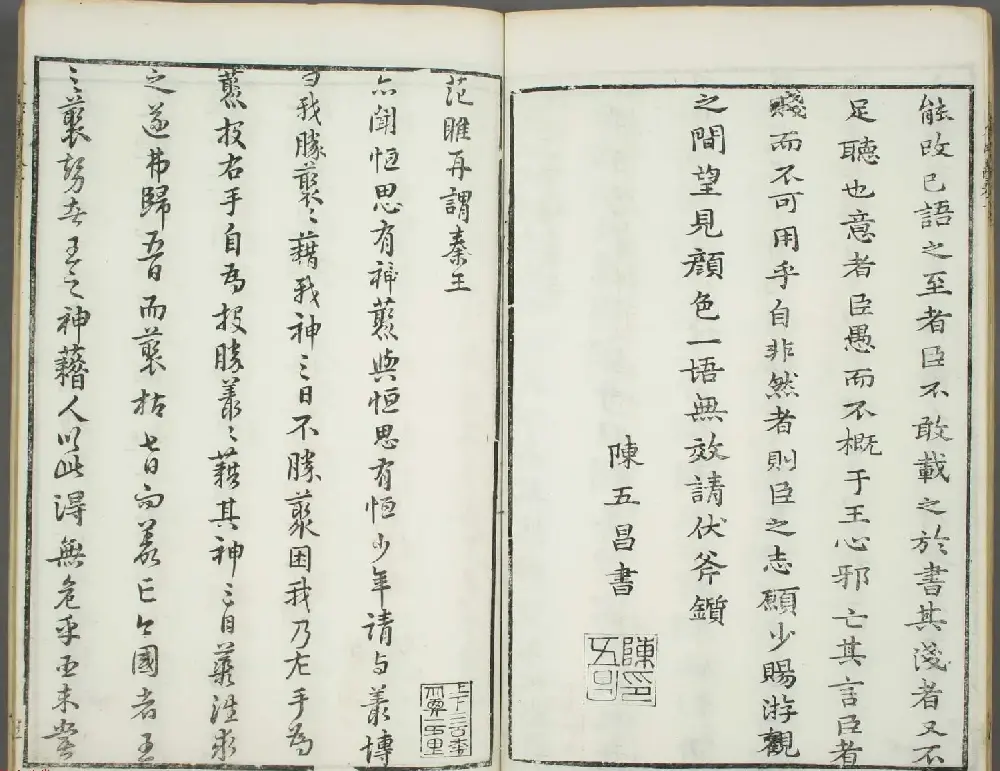 能改已語之至者臣不敢載之於書其淺者又不
足聽也意者臣愚而不概于王心邪亡其言臣者
賤而不可用乎自非然者則臣之志願少賜游觀
之間望見顏色一語無效請伏斧鑕
陳五昌書
陳五昌印
范睢再謂秦王
亦聞恒思有神叢與恒思有恒少年請与叢博
曰我勝叢〻藉我神三日不勝叢困我乃左手為
叢投右手自為投勝叢〻藉其神三日叢往求
之遂弗歸五日而叢枯七日而叢亡今國者王
之叢勢者王之神藉人以此得無危乎臣未嘗